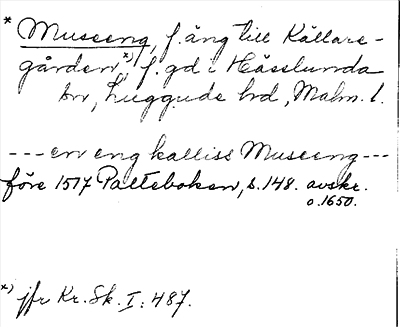 * Museeng, f. äng till Källare-
gården,*) f. gd i Hässlunda
sn, Luggude hd, Malm. l.
--- en eng kalliss Museeng ---
före 1517 Palteboken, s. 148. avskr.
o. 1650.
*) jfr Kr. Sk. I: 487.